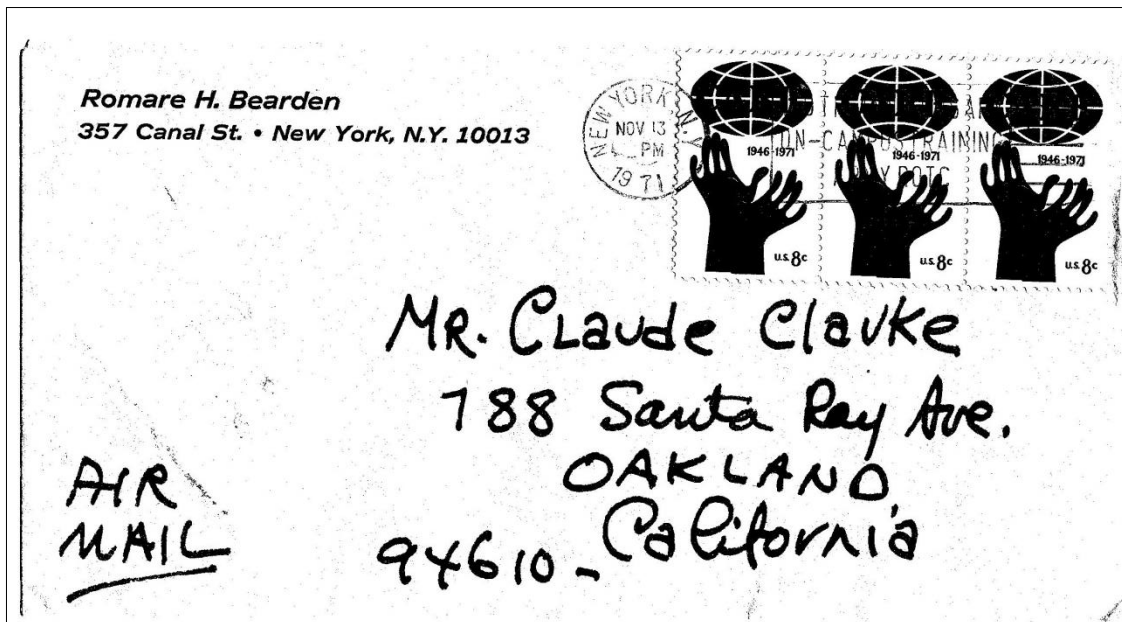 Romare H. Bearden
357 Canal St. • New York, N.Y. 10013
NEW YORK, N.Y.
NOV 13
PM
1971
ON-CAMPUS TRAINING
ARMY ROTC
1946-1971
1946-1971
1946-1971
U.S. 8c
U.S. 8c
U.S. 8c
MR. Claude Clarke
788 Santa Ray Ave.
OAKLAND
California
94610-
AIR
MAIL